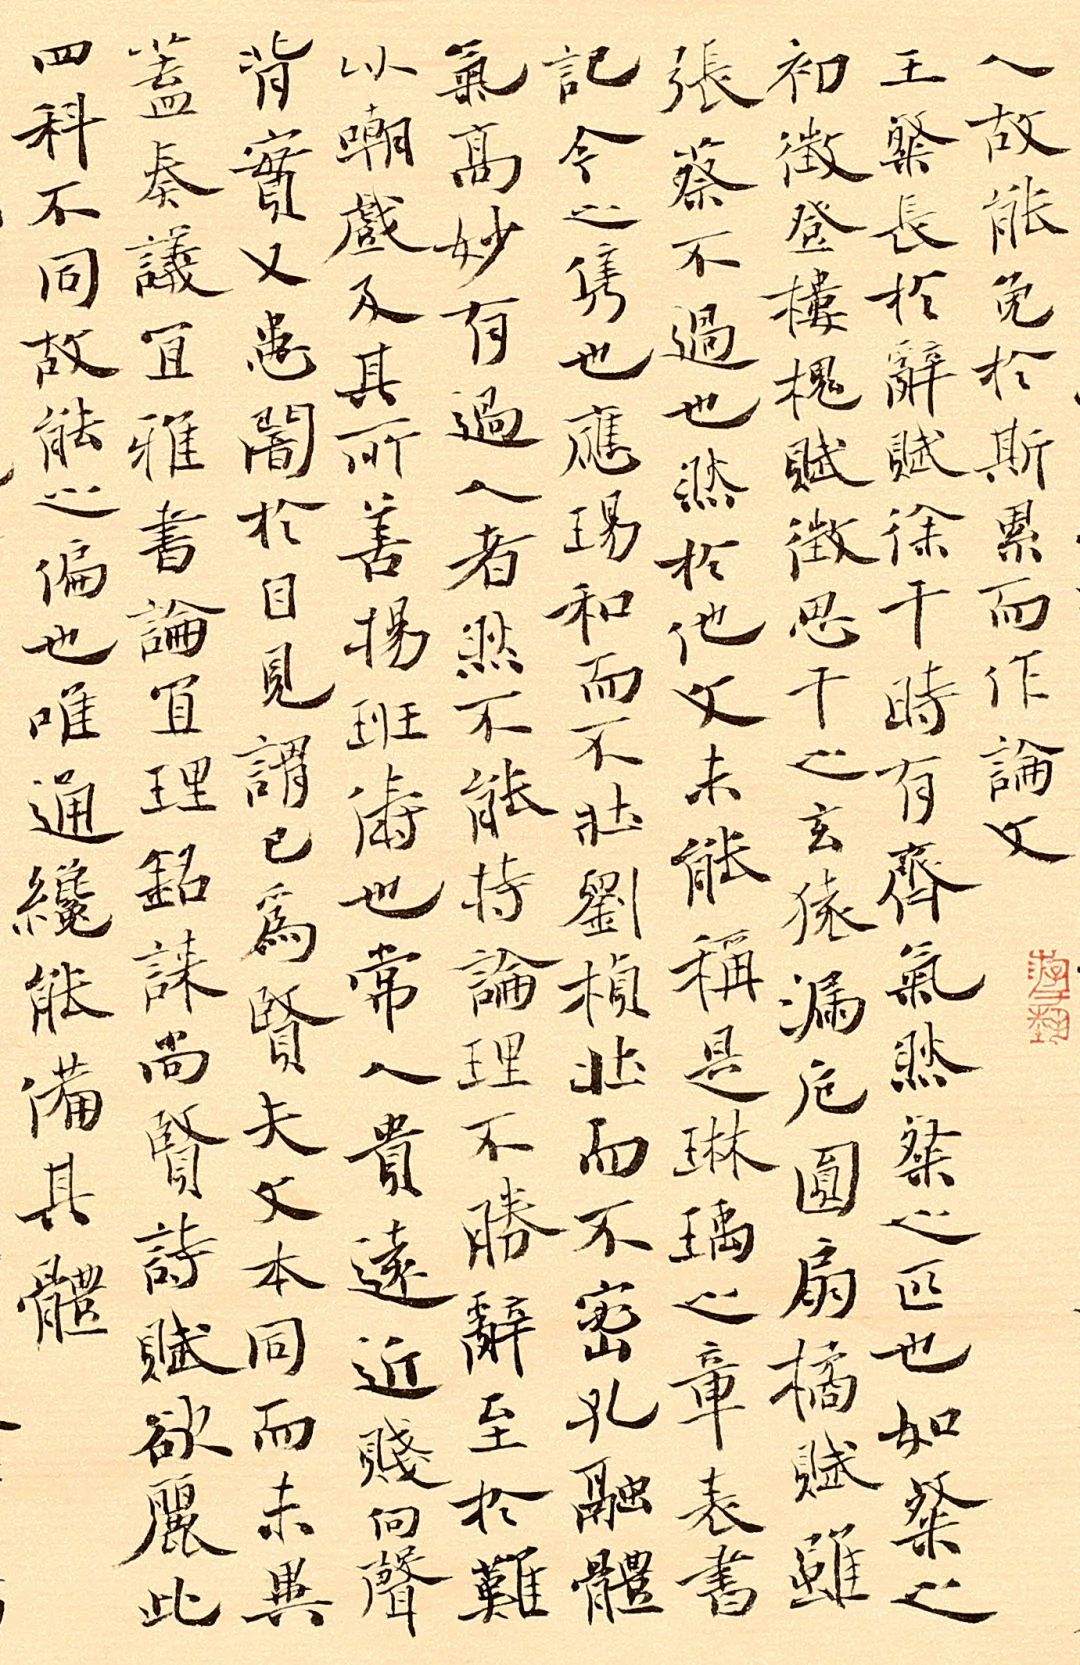 人故能免於斯累而作論文
王粲長於辭賦徐干時有齊氣然粲之匹也如粲之
初徵登樓槐賦徵思干之玄猿漏卮圓扇橘賦雖
張蔡不過也然於他文未能稱是琳瑀之章表書
記今之雋也應瑒和而不壯劉楨壯而不密孔融體
氣高妙有過人者然不能持論理不勝辭至於難
以嘲戲及其所善揚班儔也常人貴遠近賤向聲
背實又患闇於自見謂己為賢夫文本同而未異
蓋奏議宜雅書論宜理銘誄尚賢詩賦欲麗此
四科不同故能之偏也唯通纔能備其體